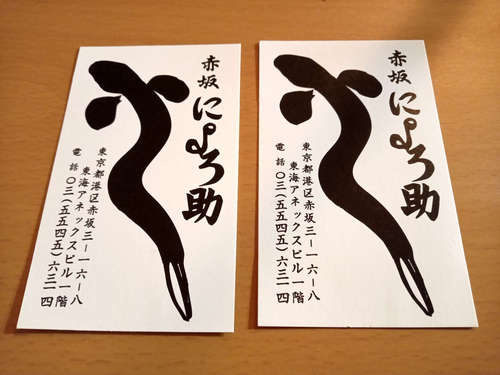 赤坂
にょろ助
東京都港区赤坂三ー一六ー八
東海アネックスビル一階
電話〇三(五五四五)六三一四
赤坂
にょろ助
東京都港区赤坂三ー一六ー八
東海アネックスビル一階
電話〇三(五五四五)六三一四